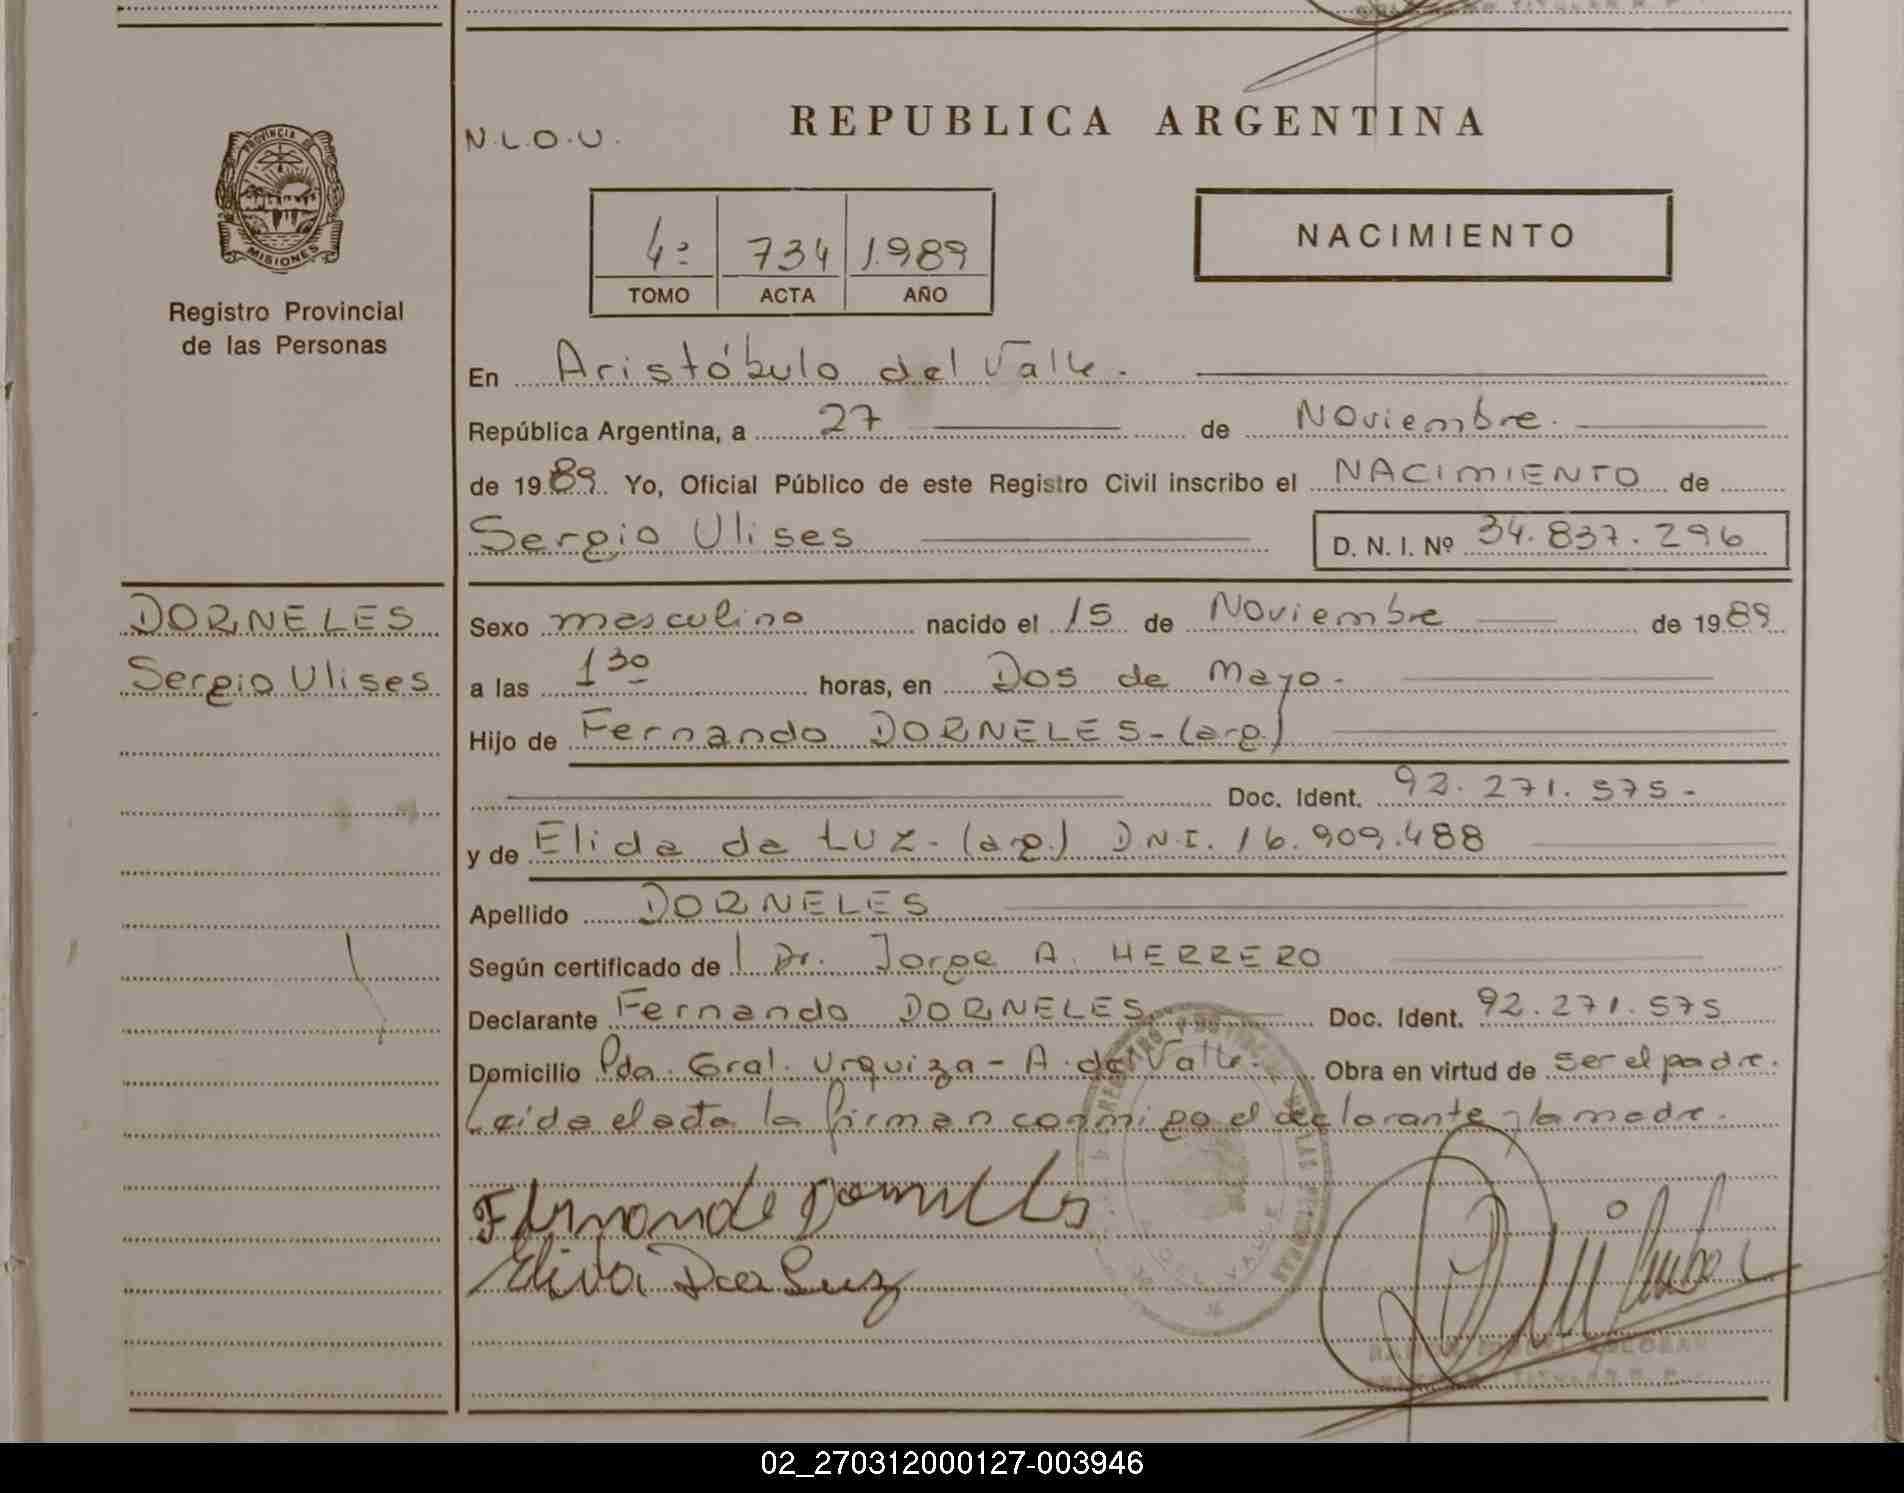 REPUBLICA ARGENTINA
N.L.O.U.
PROVINCIA DE
MISIONES
Registro Provincial
de las Personas
4º 734 1.989
TOMO ACTA AÑO
NACIMIENTO
En Aristóbulo del Valle.
República Argentina, a 27 de Noviembre.
de 1989. Yo, Oficial Público de este Registro Civil inscribo el NACIMIENTO de
Sergio Ulises D. N. I. Nº 34.837.296
DORNELES
Sergio Ulises
Sexo masculino nacido el 15 de Noviembre de 1989
a las 1 30 horas, en Dos de Mayo.
Hijo de Fernando DORNELES-(arg.)
Doc. Ident. 92.271.575-
y de Elida da LUZ-(arg.) D.N.I. 16.909.488
Apellido DORNELES
Según certificado de l Dr. Jorge A. HERRERO
Declarante Fernando DORNELES Doc. Ident. 92.271.575
Domicilio Pda. Gral. Urquiza - A. del Valle. Obra en virtud de ser el padre.
Leida el acta la firman conmigo el declarante y la madre.
02_270312000127-003946